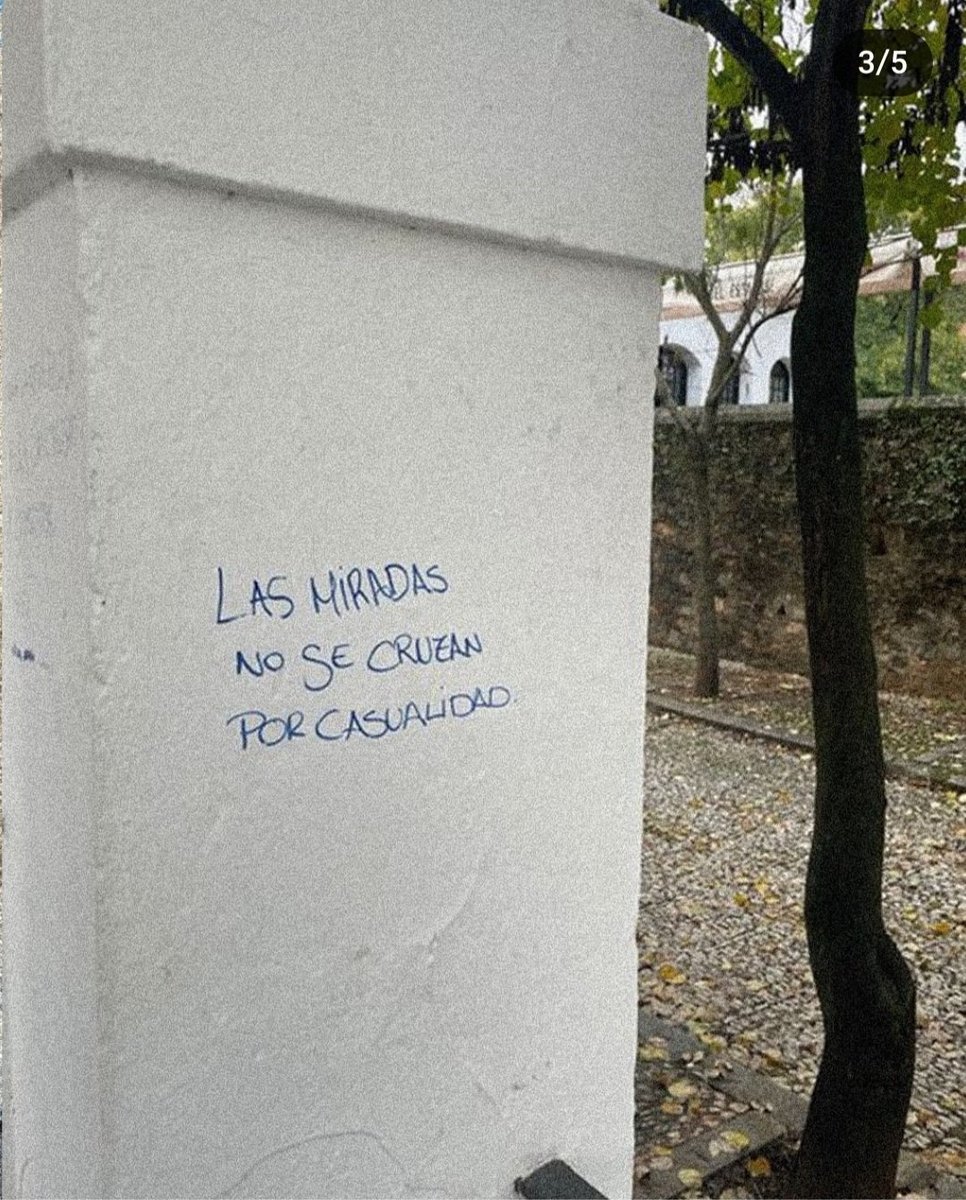 3/5
LAS MIRADAS
NO SE CRUZAN
POR CASUALIDAD.